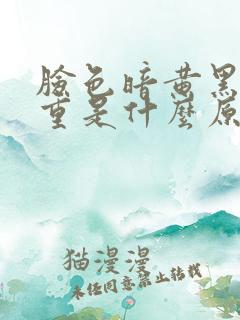 臉色暗黄黑
重是什麼原
猫漫漫
未经同意禁止转载